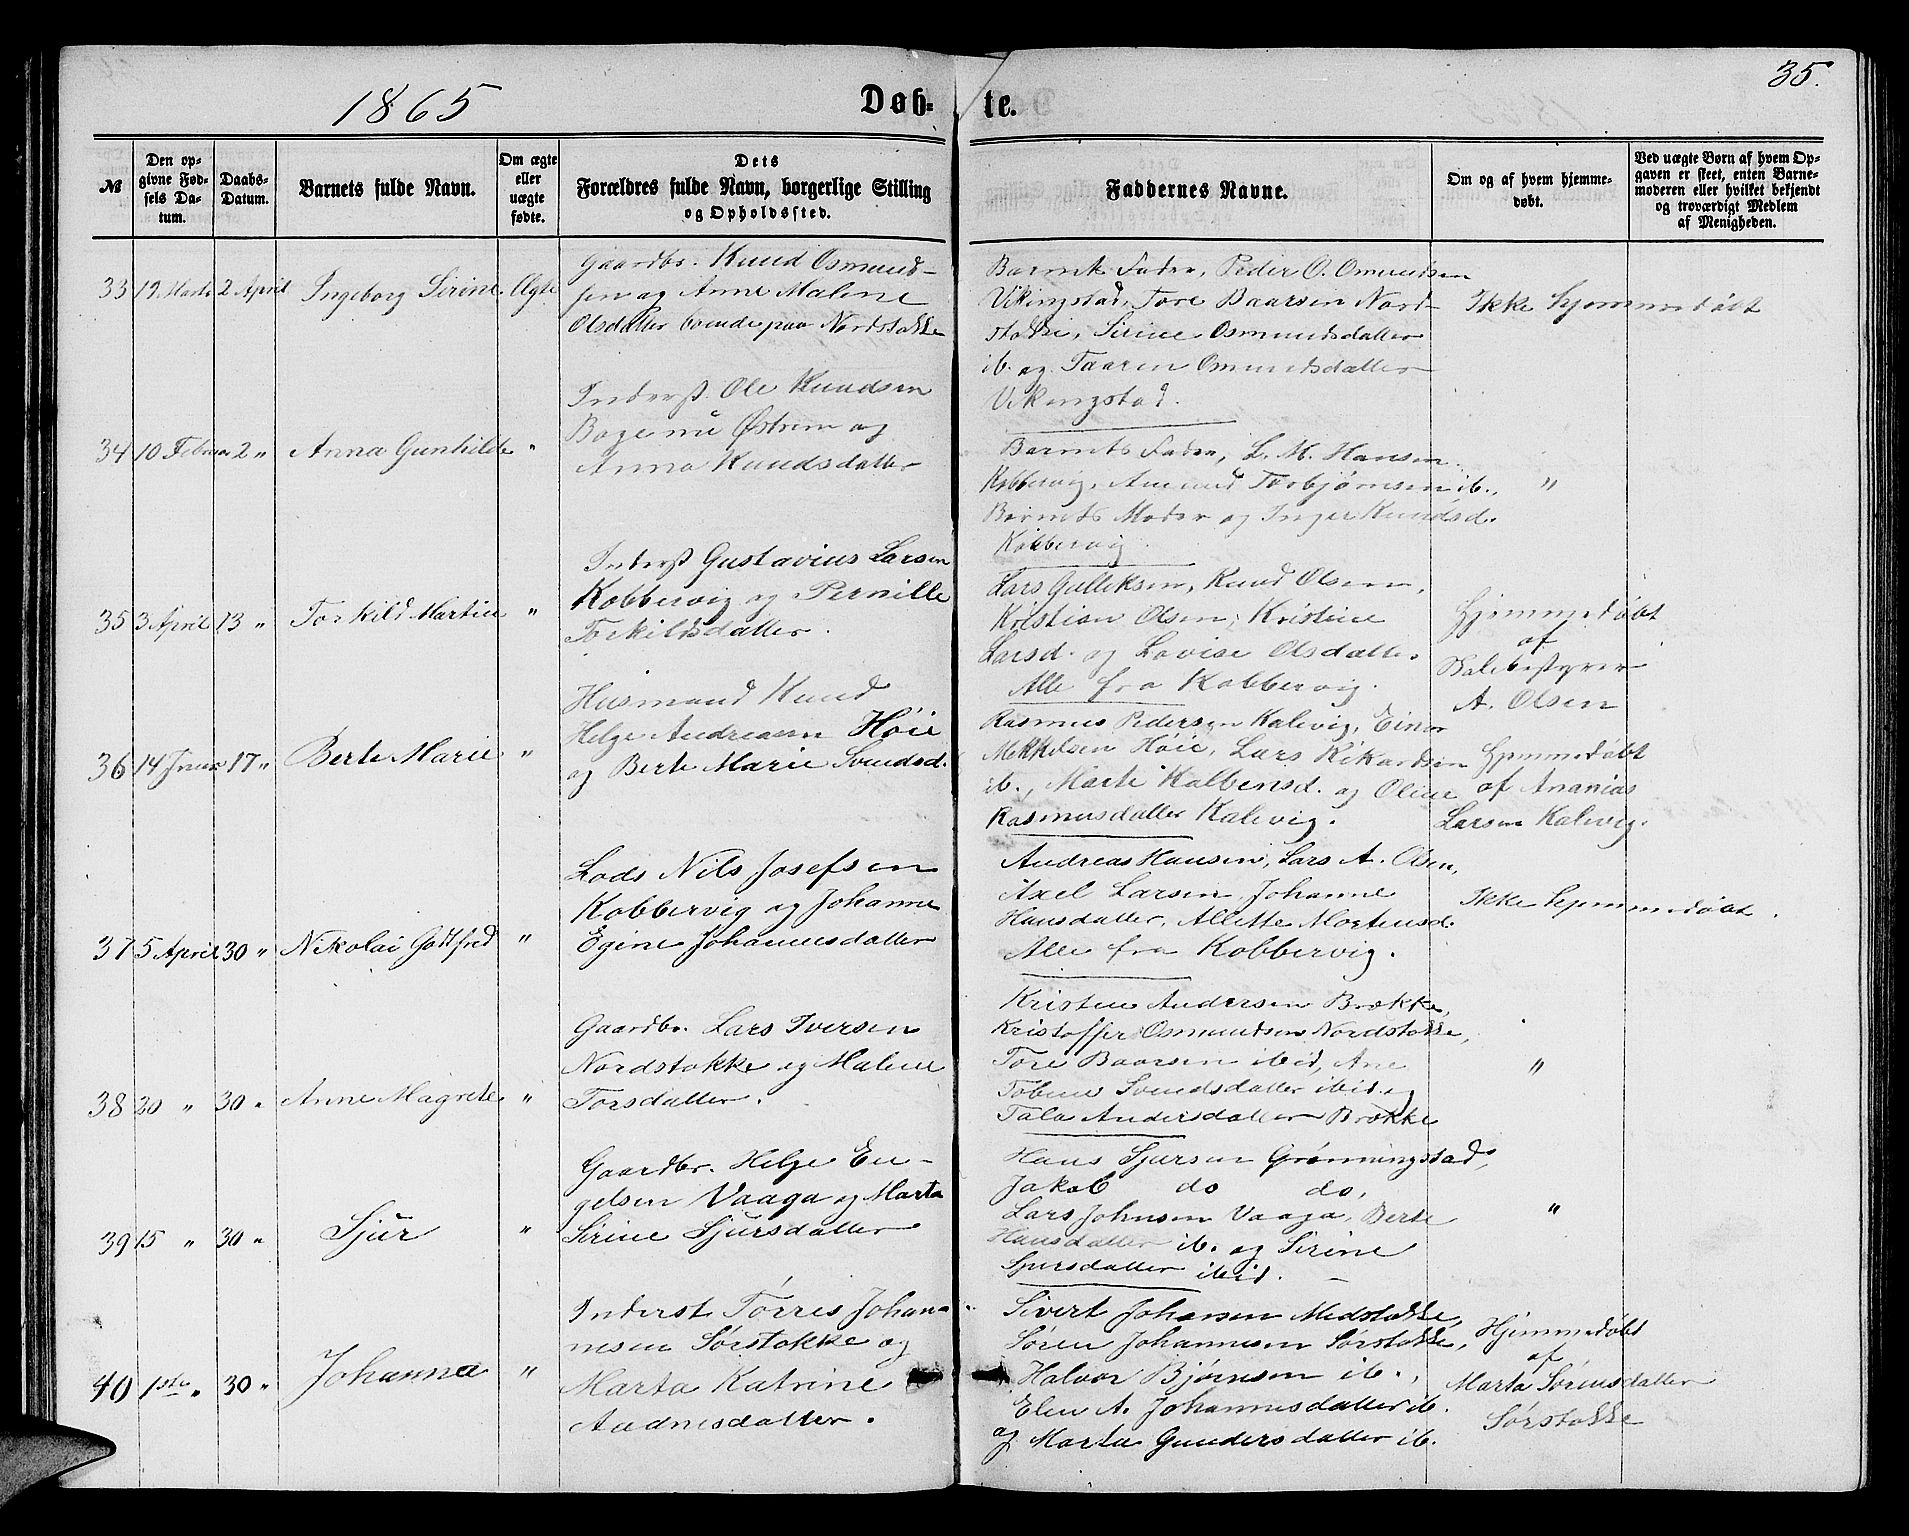 35.
1865
Døb- te.
№
Den opgivne Fødsels Datum.
Daabs-Datum.
Barnets fulde Navn.
Om ægte eller uægte fødte.
Dets Forældres fulde Navn, borgerlige Stilling og Opholdssted.
Faddernes Navne.
Om og af hvem hjemmedøbt.
Ved uægte Børn af hvem Opgaven er skeet, enten Barnemoderen eller hvilket bekjendt og troværdigt Medlem af Menigheden.
33 19 Marts 2 April Ingeborg Sirine Ægte
Gaardbr. Knud Osmund-
sen og Anne Malene
Olsdatter boende paa Nordstokke
Barnets Fader, Peder O. Osmundsen
Vikingstad, Tore Baarsen Nord-
stokke, Sirine Osmundsdatter
ib. og Taaren Osmundsdatter
Vikingstad.
Ikke hjemmedøbt
34 10 Februar 2 " Anna Gunhilde "
Inderst Ole Knudsen
Østrim og
Anna Knudsdatter
Barnets Fader, L. M. Hansen
Kobbervig, Amund Torbjørnsen ib.,
Barnets Moder og Inger Knudsd.
Kobbervig.
"
35 3 April 13 " Torkild Martin "
Inderst Gustavius Larsen
Kobbervig og Pernille
Torkildsdatter.
Lars Gulleksen, Knud Olsen,
Kristian Olsen, Kristine
Larsd. og Lovise Olsdatter.
Alle fra Kobbervig.
Hjemmedøbt
af
Skolebestyrer
A. Olsen
36 14 Januar 17 " Berte Marie "
Husmand Knud
Helge Andreasen Høie
og Berte Marie Svendsd.
Rasmus Pedersen Kalevig, Einar
Mekkelsen Høie, Lars Rikardsen
ib., Marte Kolbensd. og Oline
Rasmusdatter Kalevig.
Hjemmedøbt
af Ananias
Larsen Kalevig.
37 5 April 30 " Nikolai Gottfred "
Lods Nils Josefsen
Kobbervig og Johanne
Egine Johannesdatter
Andreas Hansen, Lars A. Olsen,
Axel Larsen, Johanne
Hansdatter, Allette Mortensd.
Alle fra Kobbervig.
Ikke hjemmedøbt.
38 20 " 30 " Anne Magrete "
Gaardbr. Lars Iversen
Nordstokke og Malene
Torsdatter.
Kristen Andersen Brække,
Kristoffer Osmundsen Nordstokke,
Tore Baarsen ibid, Ane
Tobine Svendsdatter ibid. og
Tala Andersdatter Brække
"
39 15 " 30 " Sjur "
Gaardbr. Helge En-
gelsen Vaaga og Marta
Sirine Sjursdatter
Hans Sjursen Grønningstad,
Jakob do do,
Lars Johnsen Vaaga, Berte
Hansdatter ib. og Sirine
Sjursdatter ibid. –
"
40 1ste " 30 " Johanna "
Inderst Tørres Johan-
nesen Sørstokke og
Marta Katrine
Audnesdatter.
Sivert Johansen Midstokke,
Søren Johannesen Sørstokke,
Halvor Bjørnsen ib.,
Elen A. Johannesdatter ib.
og Marta Gundersdatter ib.
Hjemmedøbt
af
Marta Sørensdatter
Sørstokke